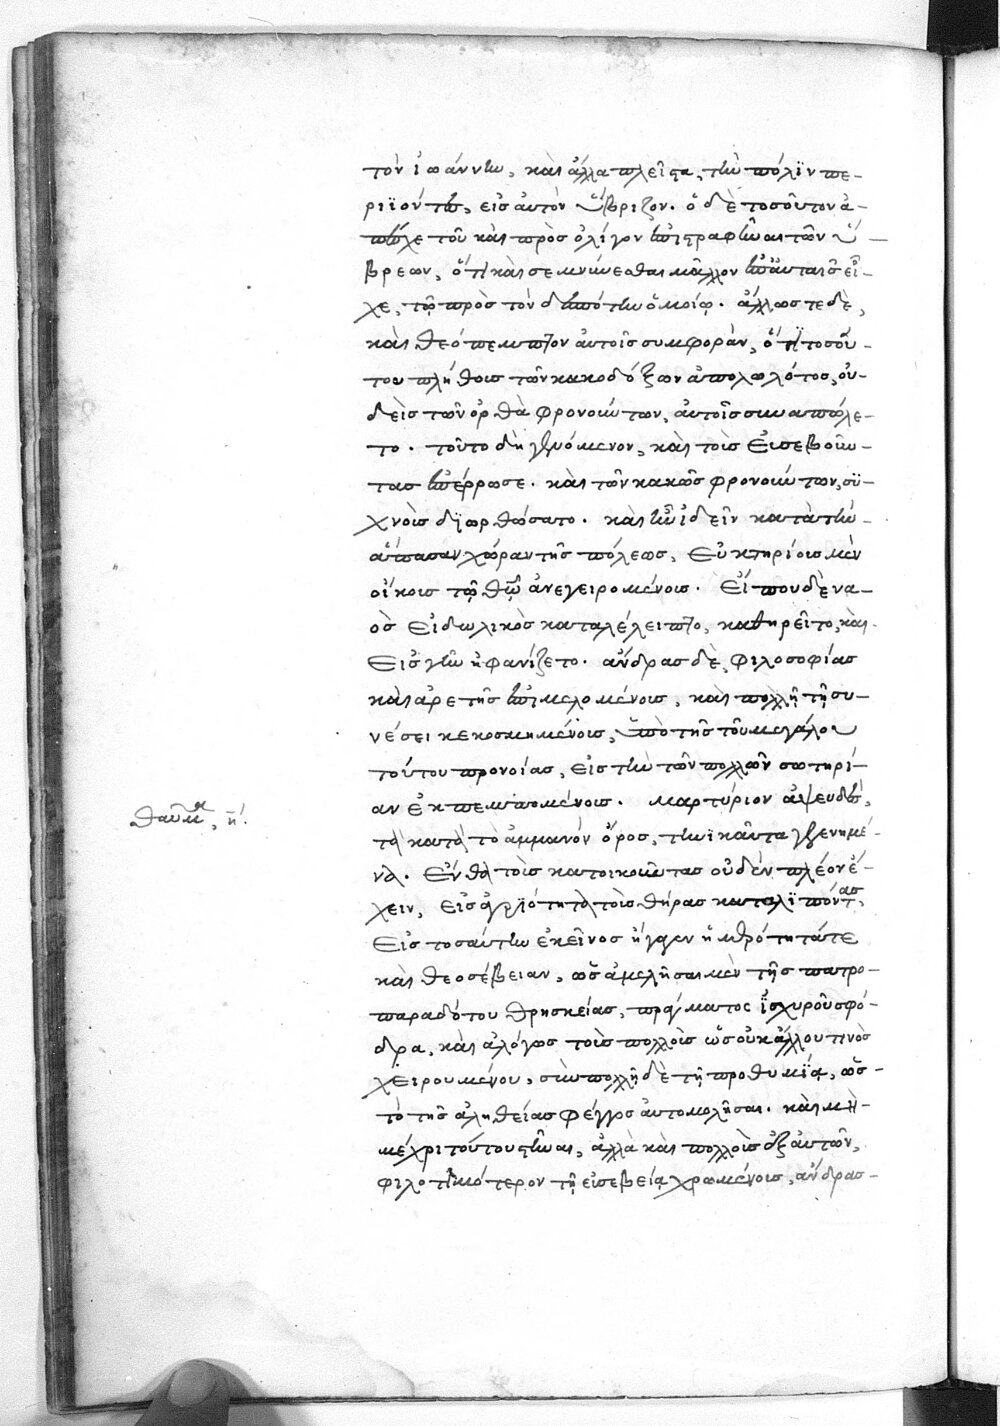 τὸν ἰωάννην, καὶ ἄλλα πλεῖστα, τὴν πόλιν πε-
ριϊόντες, εἰς αὐτὸν ὕβριζον. ὁ δὲ τοσοῦτον ἀ-
πεῖχε τοῦ καὶ πρὸς ὀλίγον ἐπιστραφῆναι τῶν ὕ-
βρεων, ὅτι καὶ σεμνύνεσθαι μᾶλλον ἐπ' αὐταῖς εἶ-
χε, τῷ πρὸς τὸν δεσπότην ὁμοίῳ. ἄλλως τε δὲ,
καὶ θεόπεμπτον αὐτοῖς συμφορὰν, ὅτι τοσού-
του πλήθους τῶν κακοδόξων ἀπολωλότος, οὐ-
δεὶς τῶν ὀρθὰ φρονούντων, αὐτοῖς συναπόλε-
το. τοῦτο δὴ γενόμενον, καὶ τοὺς εὐσεβοῦν-
τας ἐπέρρωσε. καὶ τῶν κακῶς φρονούντων, συ-
χνοὺς διωρθώσατο. καὶ ἦν ἰδεῖν κατὰ τὴν
ἅπασαν χώραν τῆς πόλεως, εὐκτηρίους μὲν
οἴκους τῷ θῷ ἀνεγειρομένους. εἴ που δὲ να-
ὸς εἰδωλικὸς καταλέλειπτο, καθηρεῖτο, καὶ
εἰς γῆν ἠφανίζετο. ἄνδρας δὲ, φιλοσοφίας
καὶ ἀρετῆς ἐπιμελομένους, καὶ πολλῇ τῇ συ-
νέσει κεκοσμημένους, ὑπὸ τῆς τοῦ μεγάλου
τούτου προνοίας, εἰς τὴν τῶν πολλῶν σωτηρί-
αν ἐκπεμπομένους. μαρτύριον ἀψευδὲς,
θαῦμα, η΄.
τὰ κατὰ τὸ ἀμμανὸν ὄρος, τηνικαῦτα γεγενημέ-
να. ἔνθα τοὺς κατοικοῦντας οὐδὲν πλέον ἔ-
χειν, εἰς ἀγριότητα τοὺς θῆρας καταλιπόντας,
εἰς τοσαύτην ἐκεῖνος ἤγαγεν ἡμερότητά τε
καὶ θεοσέβειαν, ὡς ἀμελῆσαι μὲν τῆς πατρο-
παραδότου θρησκείας, πράγματος ἰσχυροῦ σφό-
δρα, καὶ ἀλόγως τοὺς πολλοὺς ὡς οὐκ ἄλλου τινὸς
χειρουμένου, σὺν πολλῇ δὲ τῇ προθυμίᾳ, ὡς
τὸ τῆς ἀληθείας φέγγος αὐτομολῆσαι. καὶ μὴ
μέχρι τούτου στῆναι, ἀλλὰ καὶ πολλοὺς ἐξ αὐτῶν,
φιλοτιμότερον τῇ εὐσεβείᾳ χρωμένους, ἄνδρας